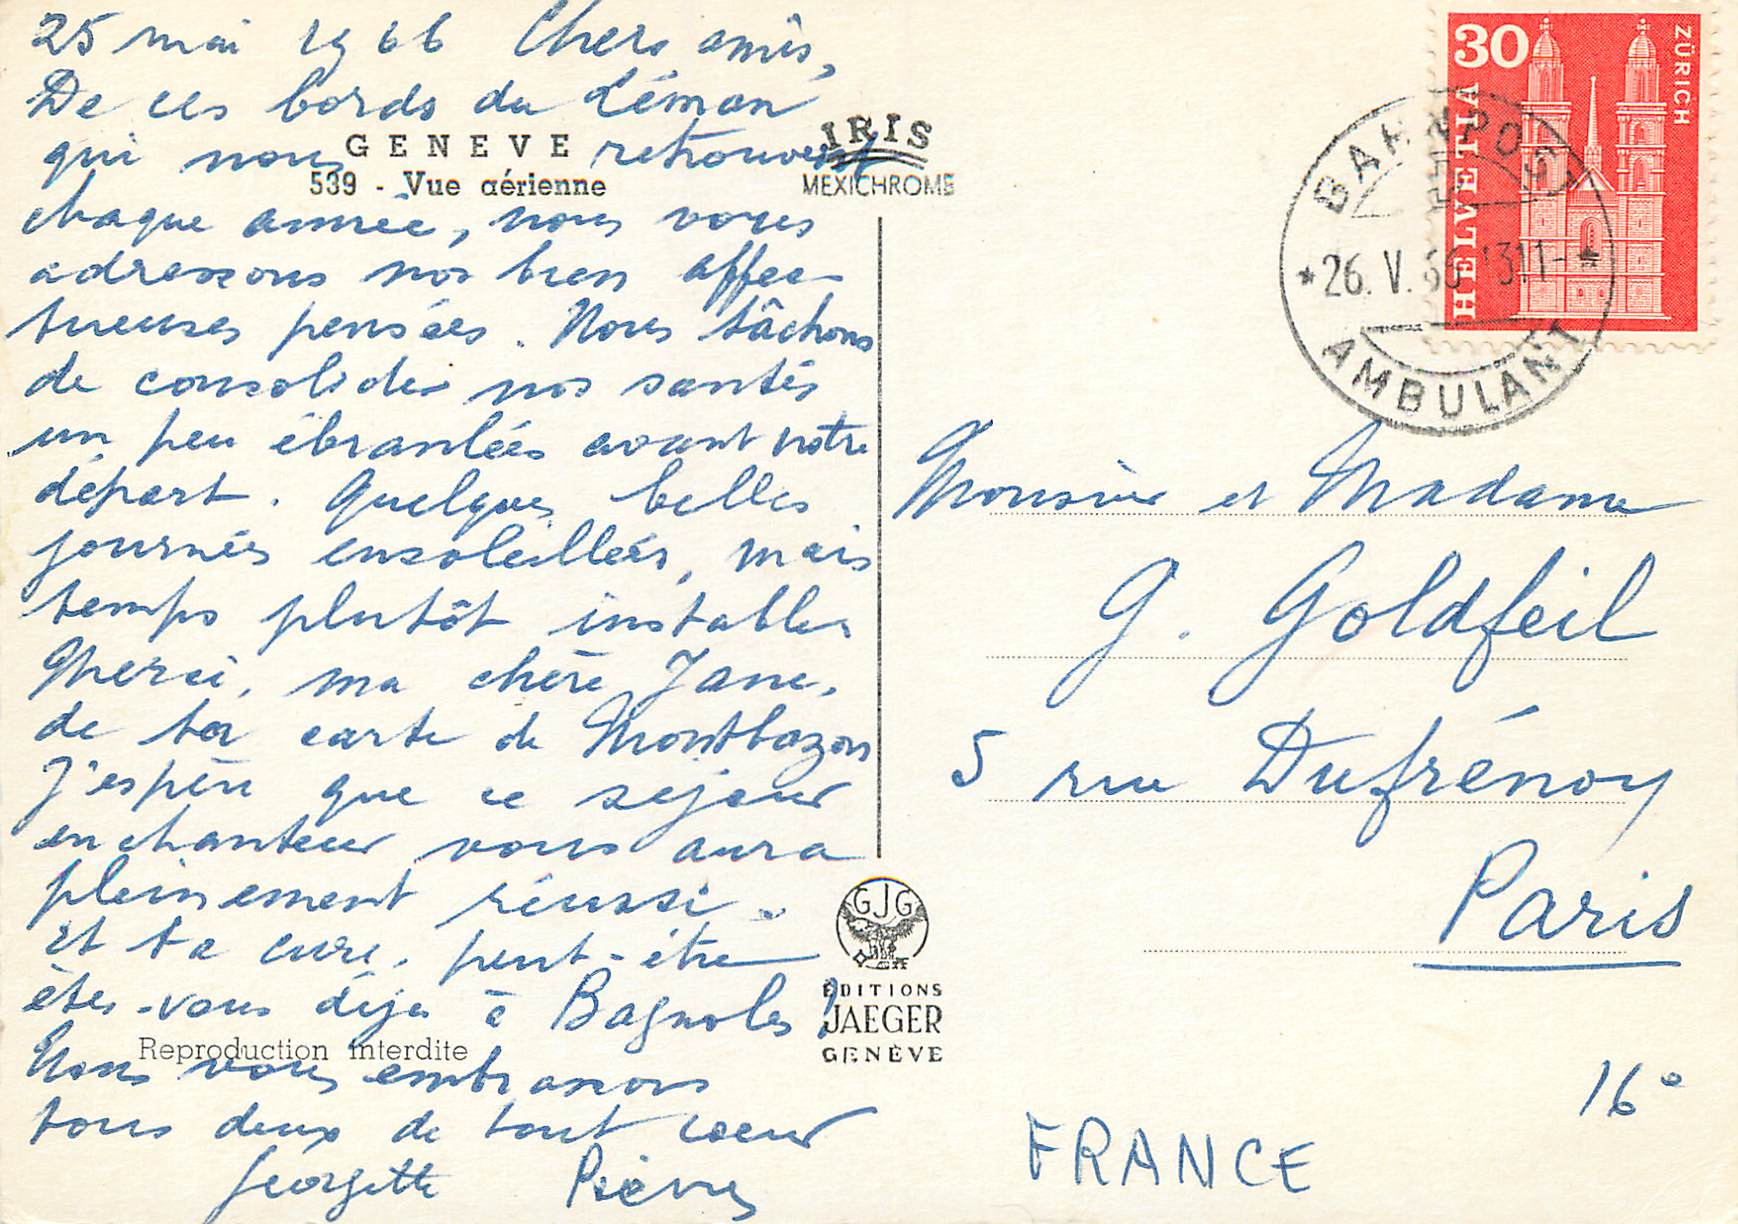 25 mai 1966 Chers amis,
De ces bords du Léman
qui nous retrouvent
chaque année, nous vous
adressons nos bien affec-
tueuses pensées. Nous tâchons
de consolider nos santés
un peu ébranlées avant notre
départ. Quelques belles
journées ensoleillées, mais
temps plutôt instable.
Merci, ma chère Jane,
de ta carte de Montbazon
J'espère que ce séjour
enchanteur vous aura
pleinement réussi.
et ta cure, peut-être
êtes-vous déjà à Bagnoles?
Nous vous embrassons
tous deux de tout coeur
Georgette Pierre
GENEVE
539 - Vue aérienne
IRIS
MEXICHROME
GJG
ÉDITIONS
JAEGER
GENÈVE
Reproduction interdite
30
HELVETIA
ZÜRICH
BAHNPOST
*26.V.66 1311-*
AMBULANT
Monsieur et Madame
G. Goldfeil
5 rue Dufrénoy
Paris
16e
FRANCE